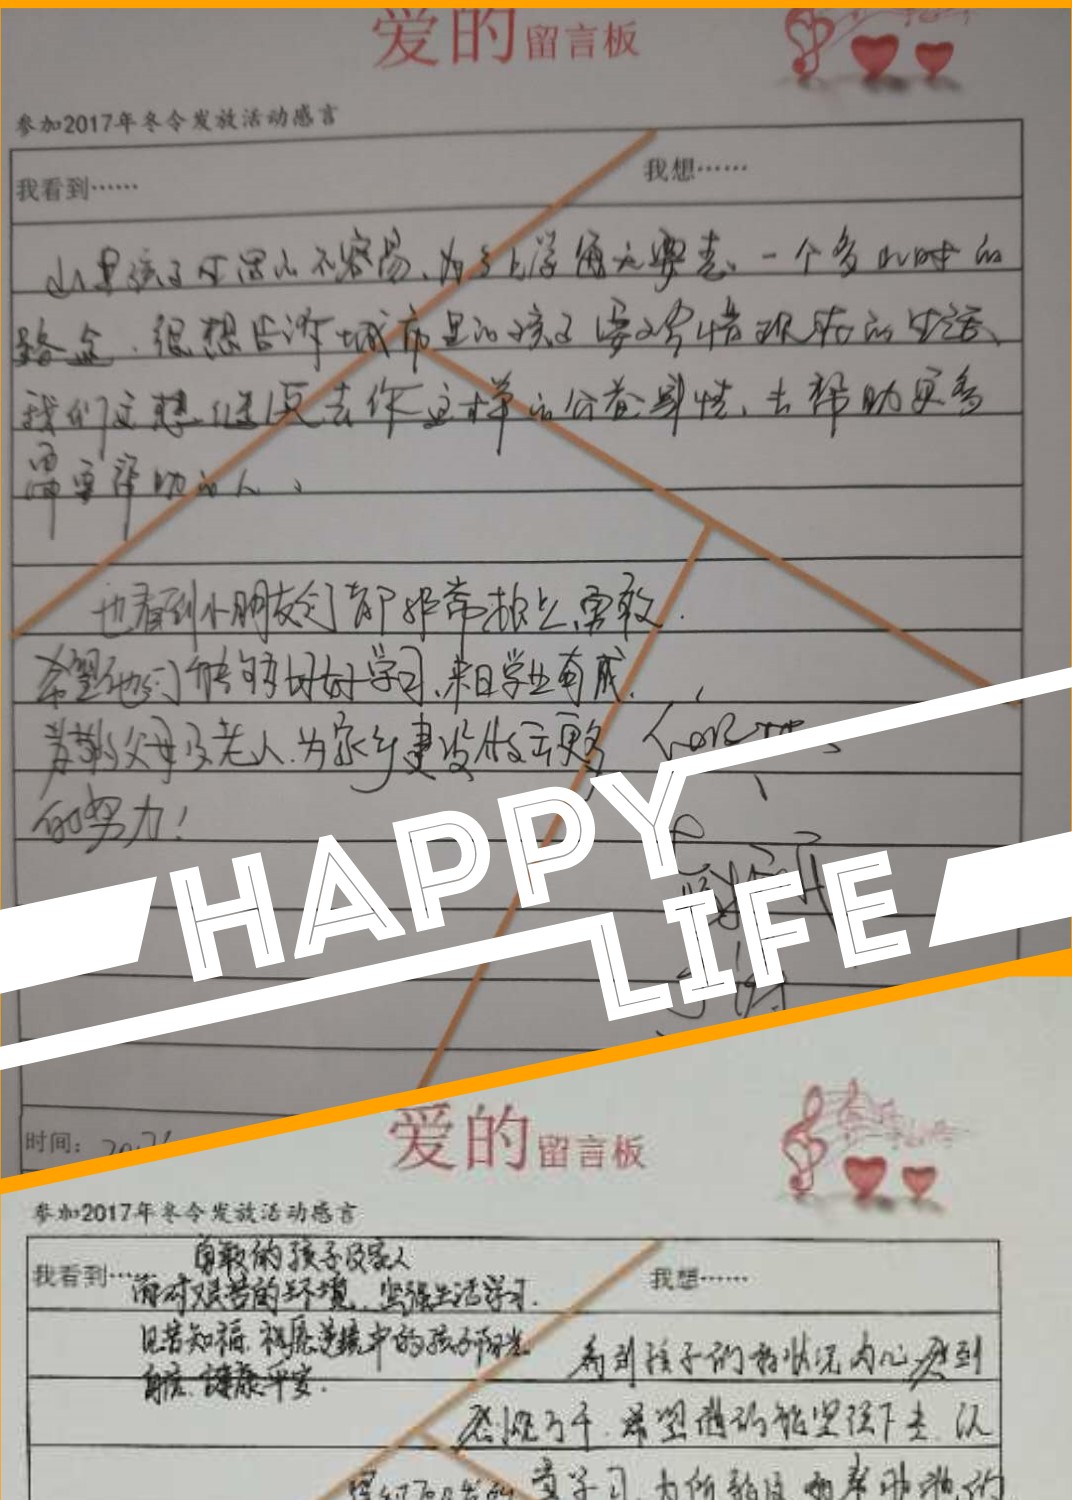 爱的留言板
参加2017年冬令发放活动感言
我看到…… 我想……
山里孩子生活的不容易、为了上学每天要走、一个多小时的
路途. 很想告诉城市里的孩子要珍惜现在的生活、
我们也想继续去做这样的公益事情、去帮助更多
需要帮助的人、
也看到小朋友们都非常独立、勇敢.
希望他们能够好好学习、来日学业有成.
孝敬父母及老人.为家乡建设做出更多
的努力!
HAPPY
LIFE
时间:
爱的留言板
参加2017年冬令发放活动感言
勇敢的孩子及家人
我看到…… 我想……
面对艰苦的环境、坚强生活学习.
见苦知福. 祝愿逆境中的孩子阳光
自信、健康平安.
看到孩子们的状况内心感到
感慨万千. 希望他们能坚强下去.
学习